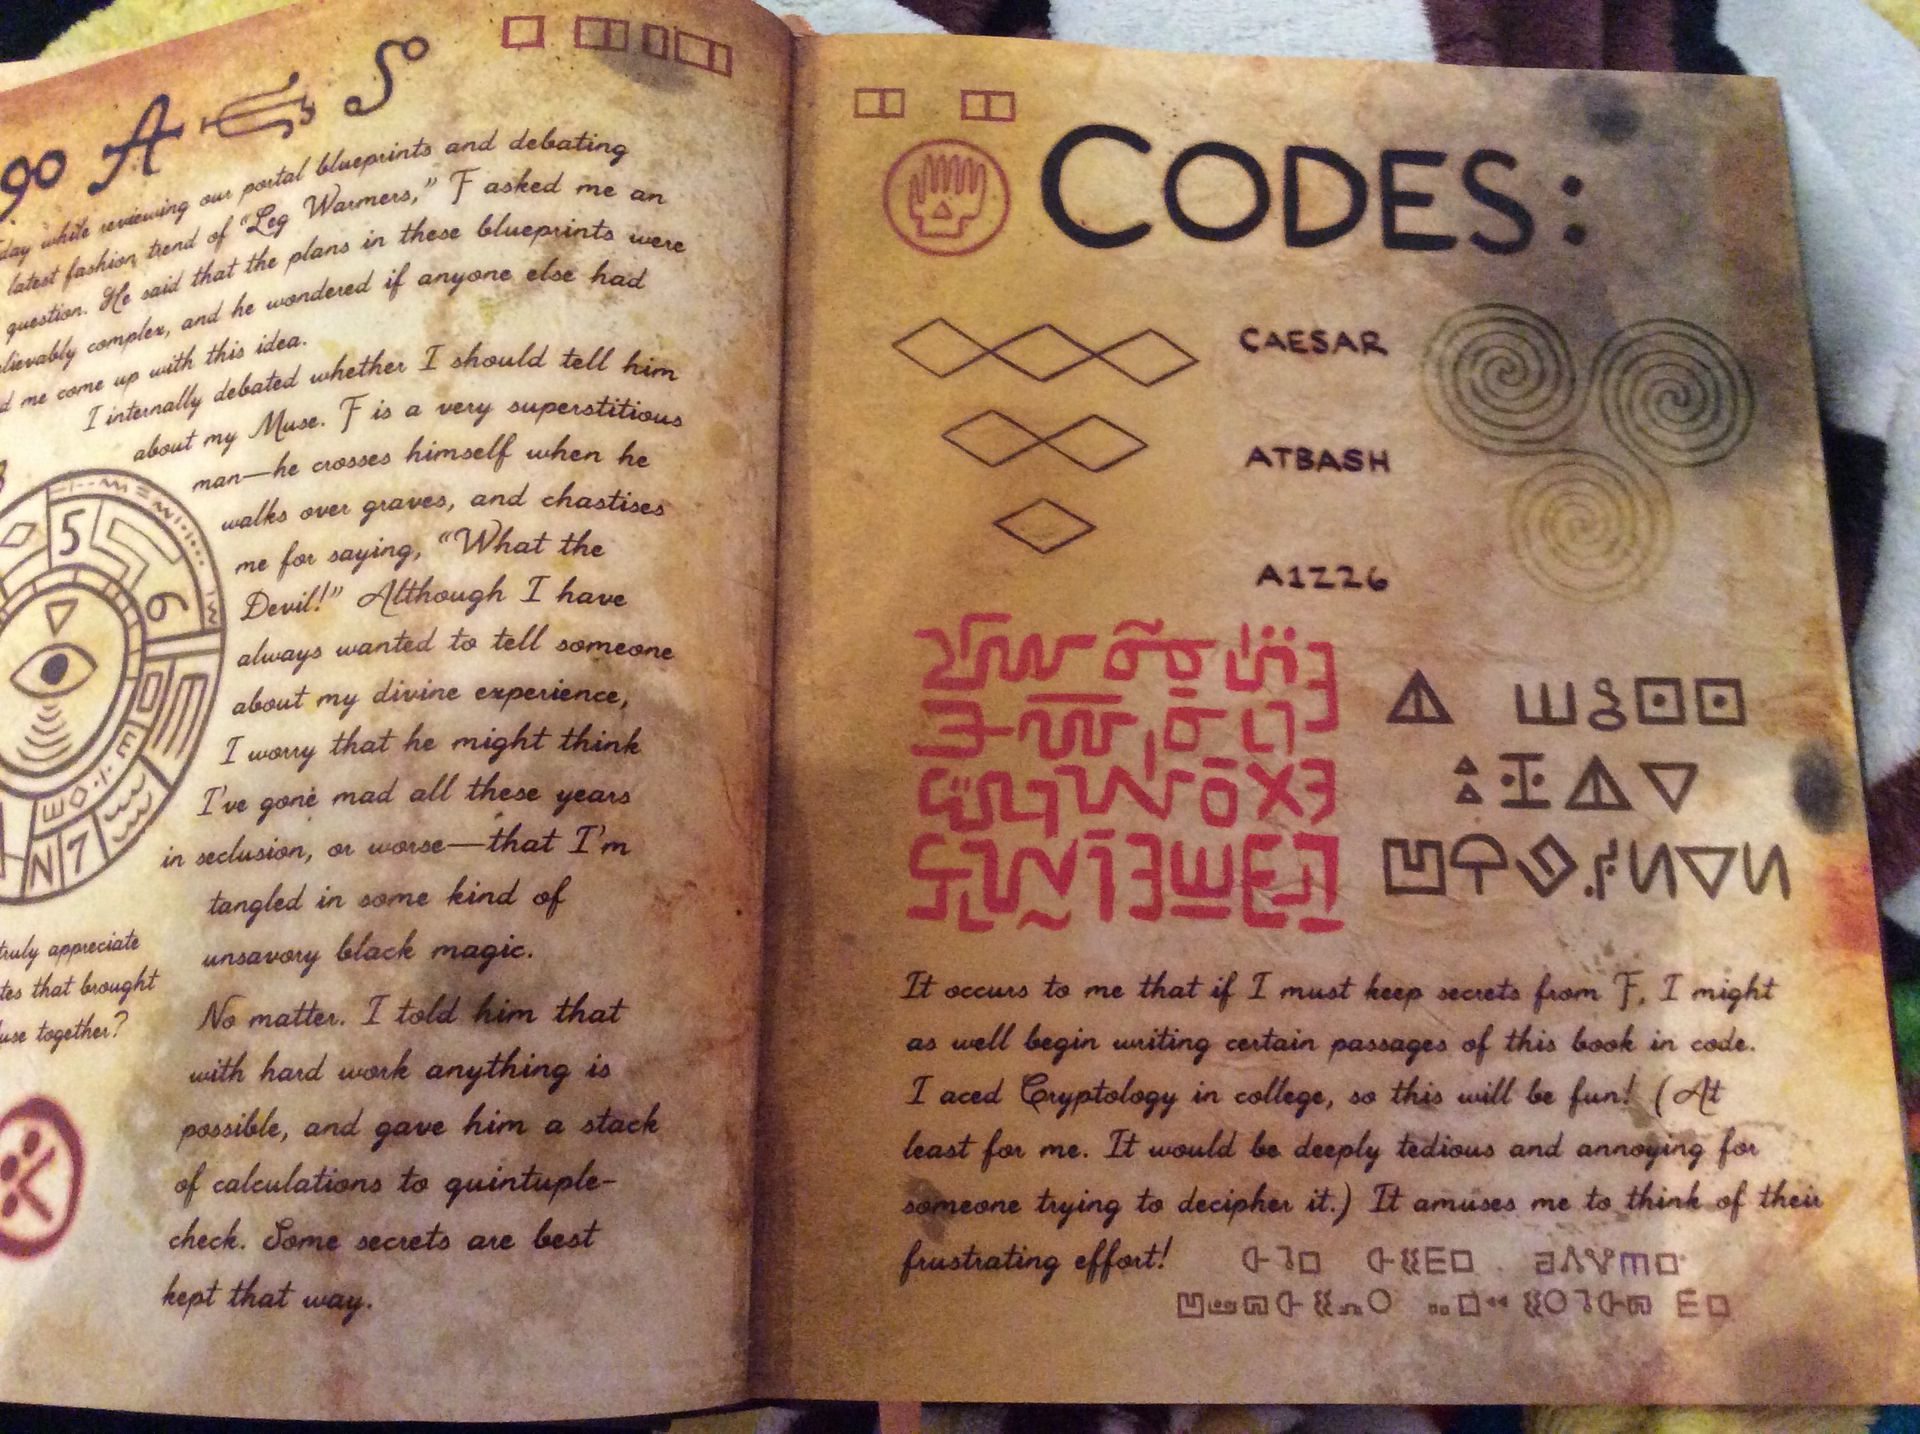 day while reviewing our portal blueprints and debating
latest fashion trend of "Leg Warmers," F asked me an
question. He said that the plans in these blueprints were
complex, and he wondered if anyone else had
me come up with this idea.
I internally debated whether I should tell him
about my Muse. F is a very superstitious
man—he crosses himself when he
walks over graves, and chastises
me for saying, "What the
Devil!" Although I have
always wanted to tell someone
about my divine experience,
I worry that he might think
I've gone mad all these years
in seclusion, or worse—that I'm
tangled in some kind of
unsavory black magic.
No matter. I told him that
with hard work anything is
possible, and gave him a stack
of calculations to quintuple-
check. Some secrets are best
kept that way.
5
6
N7
truly appreciate
that brought
together?
CODES:
CAESAR
ATBASH
A1Z26
It occurs to me that if I must keep secrets from F, I might
as well begin writing certain passages of this book in code.
I aced Cryptology in college, so this will be fun! (At
least for me. It would be deeply tedious and annoying for
someone trying to decipher it.) It amuses me to think of their
frustrating effort!